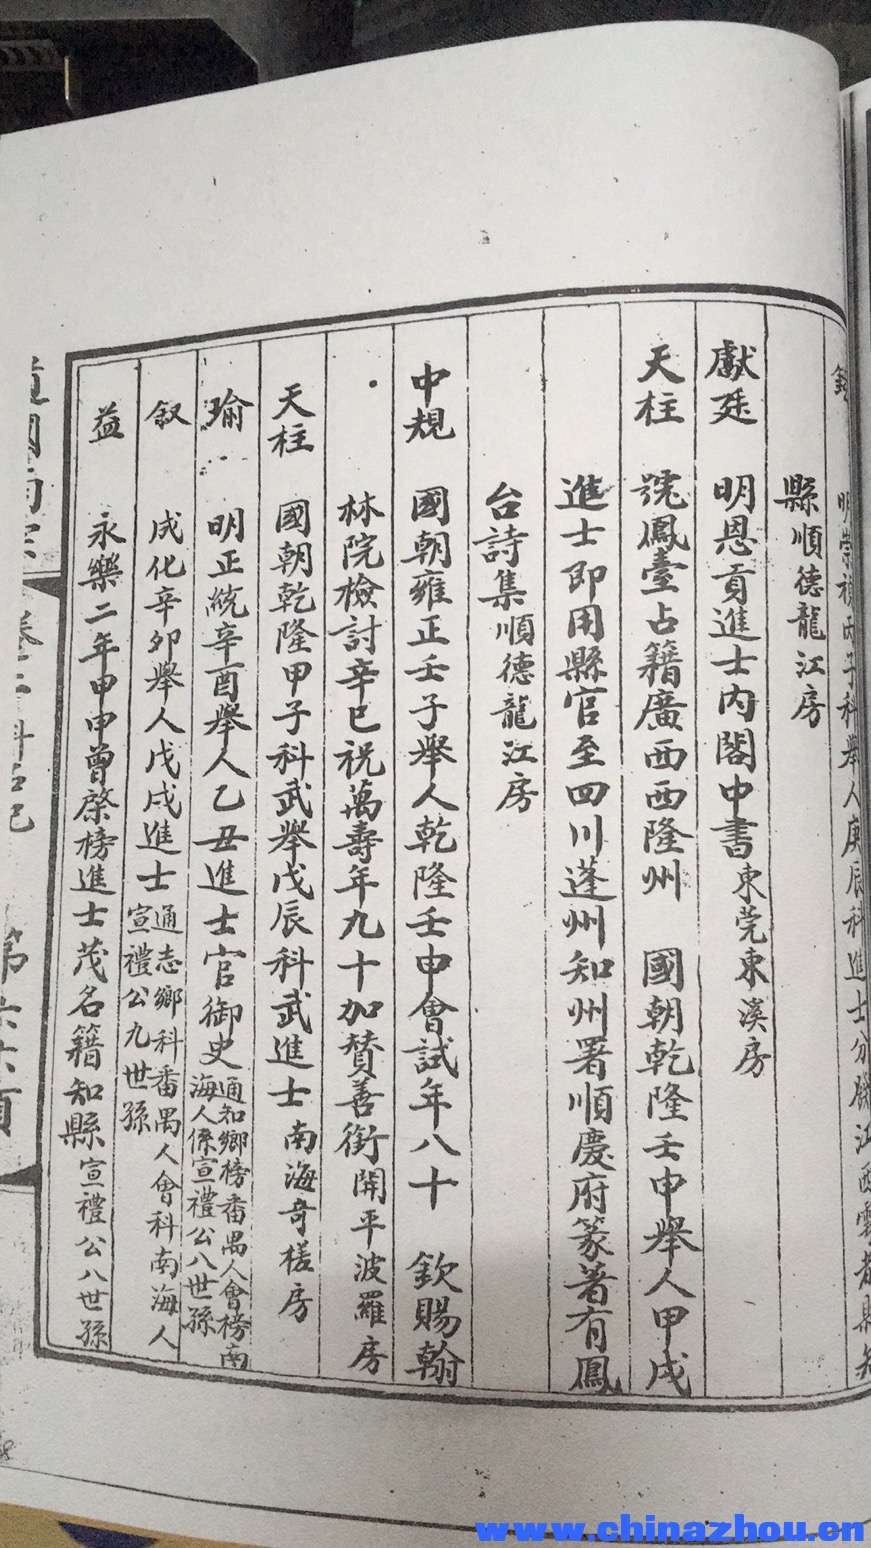 明崇禎丙子科舉人庚辰科進士分
縣順德龍江房
獻廷 明恩貢進士內閣中書東莞東溪房
天柱 號鳳臺占籍廣西西隆州 國朝乾隆壬申舉人甲戌
進士即用縣官至四川蓬州知州署順慶府篆著有鳳
台詩集順德龍江房
中規 國朝雍正壬子舉人乾隆壬申會試年八十 欽賜翰
林院檢討辛巳祝萬壽年九十加贊善銜開平波羅房
天柱 國朝乾隆甲子科武舉戊辰科武進士南海奇槎房
瑜 明正統辛酉舉人乙丑進士官御史通知鄉榜番禺人會榜南
海人係宣禮公八世孫
叙 成化辛卯舉人戊戌進士通志鄉科番禺人會科南海人
宣禮公九世孫
益 永樂二年甲申曾棨榜進士茂名籍知縣宣禮公八世孫
www.chinazhou.cn